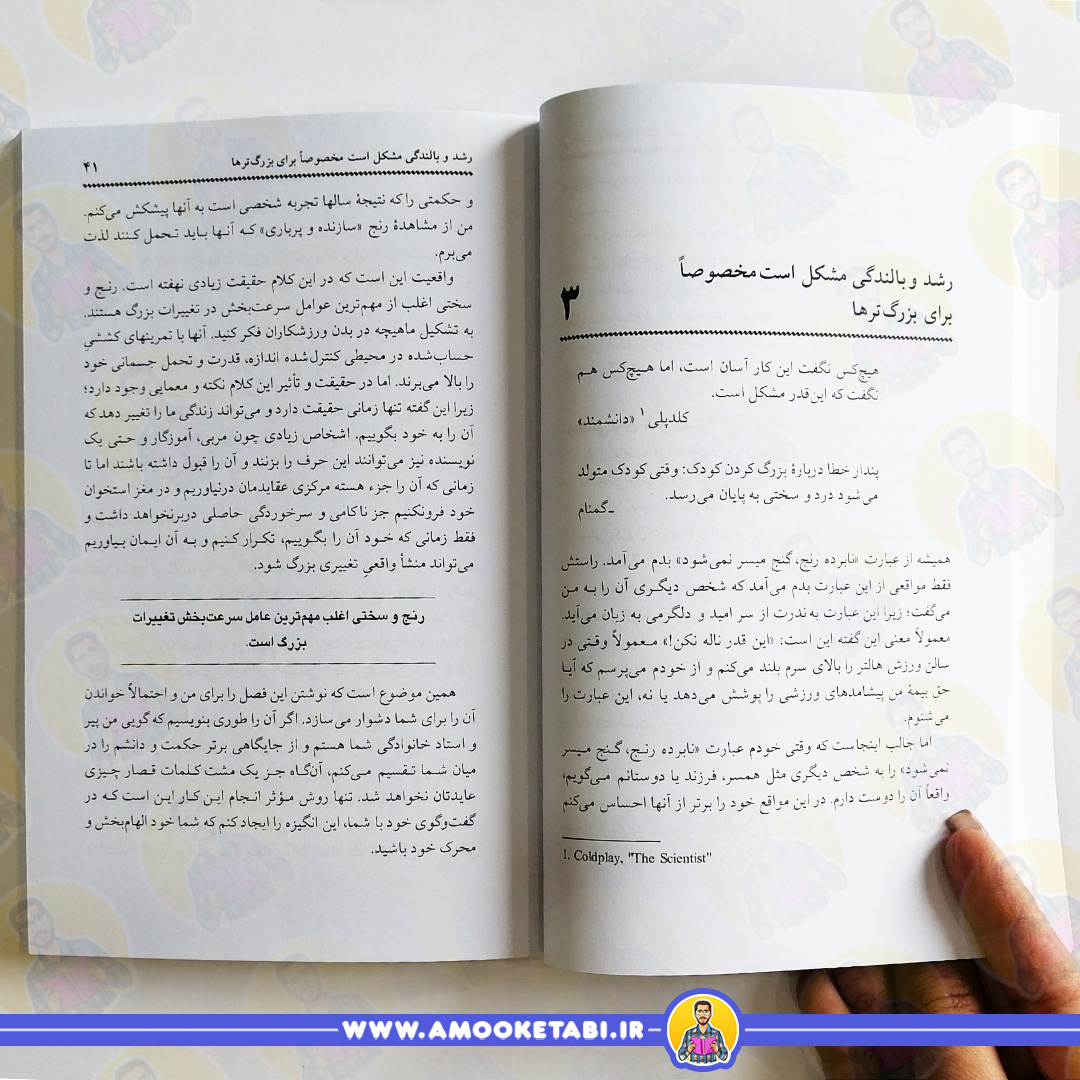 رشد و بالندگی مشکل است مخصوصاً
برای بزرگ‌ترها
۳
هیچ‌کس نگفت این کار آسان است، اما هیچ‌کس هم
نگفت که این‌قدر مشکل است.
کلدپلی۱ «دانشمند»
پندار خطا دربارهٔ بزرگ کردن کودک: وقتی کودک متولد
می‌شود درد و سختی به پایان می‌رسد.
ـ‌گمنام
همیشه از عبارت «نابرده رنج، گنج میسر نمی‌شود» بدم می‌آمد. راستش
فقط مواقعی از این عبارت بدم می‌آمد که شخص دیگری آن را به من
می‌گفت؛ زیرا این عبارت به‌ندرت از سر امید و دلگرمی به زبان می‌آید.
معمولاً معنی این گفته این است: «این قدر ناله نکن!» معمولاً وقتی در
سالن ورزش هالتر را بالای سرم بلند می‌کنم و از خودم می‌پرسم که آیا
حق بیمهٔ من پیشامدهای ورزشی را پوشش می‌دهد یا نه، این عبارت را
می‌شنوم.
اما جالب اینجاست که وقتی خودم عبارت «نابرده رنج، گنج میسر
نمی‌شود» را به شخص دیگری مثل همسر، فرزند یا دوستانم می‌گویم،
واقعاً آن را دوست دارم. در این مواقع خود را برتر از آنها احساس می‌کنم
1. Coldplay, "The Scientist"
رشد و بالندگی مشکل است مخصوصاً برای بزرگ‌ترها ۴۱
و حکمتی را که نتیجهٔ سالها تجربه شخصی است به آنها پیشکش می‌کنم.
من از مشاهدهٔ رنج «سازنده و پرباری» که آنها باید تحمل کنند لذت
می‌برم.
واقعیت این است که در این کلام حقیقت زیادی نهفته است. رنج و
سختی اغلب از مهم‌ترین عوامل سرعت‌بخش در تغییرات بزرگ هستند.
به تشکیل ماهیچه در بدن ورزشکاران فکر کنید. آنها با تمرینهای کششیِ
حساب‌شده در محیطی کنترل‌شده اندازه، قدرت و تحمل جسمانی خود
را بالا می‌برند. اما در حقیقت و تأثیر این کلام نکته و معمایی وجود دارد؛
زیرا این گفته تنها زمانی حقیقت دارد و می‌تواند زندگی ما را تغییر دهد که
آن را به خود بگوییم. اشخاص زیادی چون مربی، آموزگار و حتی یک
نویسنده نیز می‌توانند این حرف را بزنند و آن را قبول داشته باشند اما تا
زمانی که آن را جزء هسته مرکزی عقایدمان درنیاوریم و در مغز استخوان
خود فرونکنیم جز ناکامی و سرخوردگی حاصلی دربرنخواهد داشت و
فقط زمانی که خود آن را بگوییم، تکرار کنیم و به آن ایمان بیاوریم
می‌تواند منشأ واقعیِ تغییری بزرگ شود.
رنج و سختی اغلب مهم‌ترین عامل سرعت‌بخش تغییرات
بزرگ است.
همین موضوع است که نوشتن این فصل را برای من و احتمالاً خواندن
آن را برای شما دشوار می‌سازد. اگر آن را طوری بنویسیم که گویی من پیر
و استاد خانوادگی شما هستم و از جایگاهی برتر حکمت و دانشم را در
میان شما تقسیم می‌کنم، آن‌گاه جز یک مشت کلمات قصار چیزی
عایدتان نخواهد شد. تنها روش مؤثر انجام این کار این است که در
گفت‌وگوی خود با شما، این انگیزه را ایجاد کنم که شما خود الهام‌بخش و
محرک خود باشید.
WWW.AMOOKETABI.IR